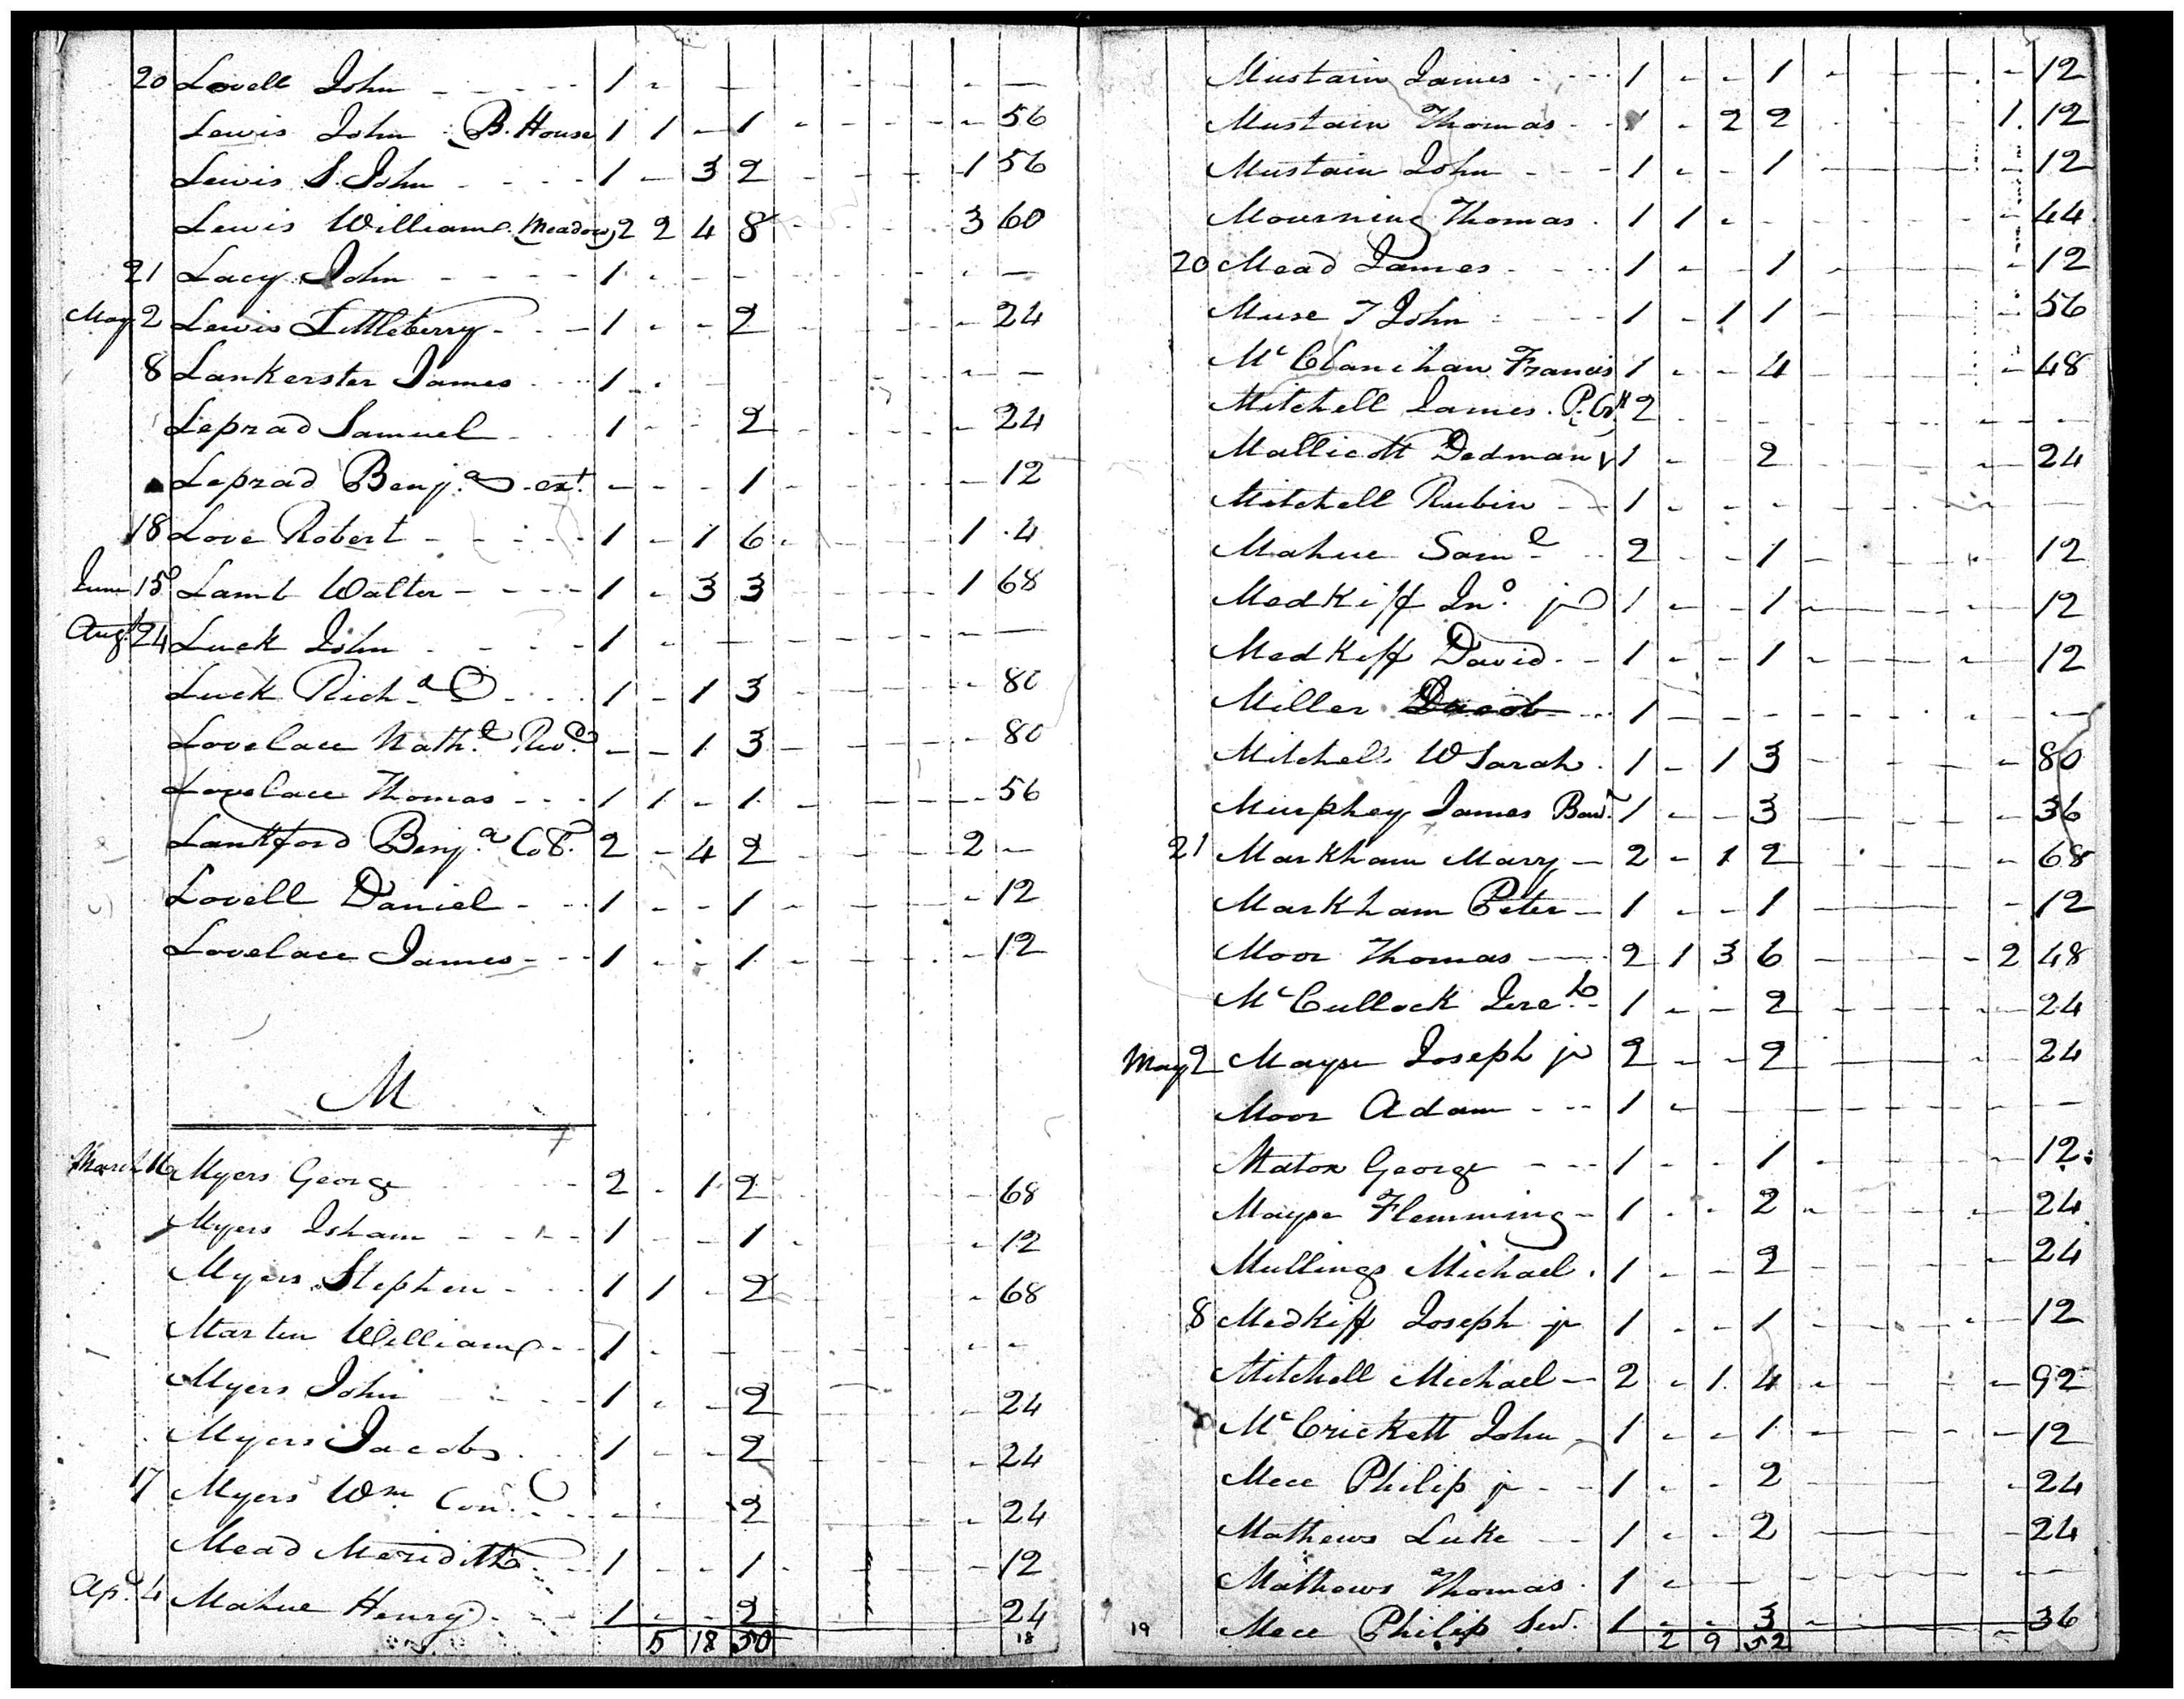 20 Lovell John - - - - - 1 - - - -
Lewis John B. House 1 1 - 1 - - - - - 56
Lewis S. John - - - - 1 - 3 2 - - - 1 56
Lewis William Meadow 2 2 4 8 - - - 3 60
21 Lacy John - - - - 1 - - - - - - -
May 2 Lewis Littleberry - - - 1 - - 2 - - - - 24
8 Lankerster James - - - 1 - - - - - -
Leprad Samuel - - - 1 - - 2 - - - - 24
Leprad Benj.a ext. - - - 1 - - - - 12
18 Love Robert - - - - 1 - 1 6 - - - 1 .4
June 15 Lamb Walter - - - - 1 - 3 3 - - - 1 68
Augt 24 Luck John - - - - 1 - - - - - - -
Luck Rich.d - - - 1 - 1 3 - - - - 80
Lovelace Nath.l Revd - - 1 3 - - - - 80
Lovelace Thomas - - - 1 1 - 1 - - - - 56
Lankford Benj.a Col. 2 - 4 2 - - - 2 -
Lovell Daniel - - - 1 - - 1 - - - - 12
Lovelace James - - - 1 - - 1 - - - - 12
M
March 16 Myers George - - - 2 - 1 2 - - - - 68
Myers Isham - - - - 1 - - 1 - - - - 12
Myers Stephen - - - 1 1 - 2 - - - - 68
Martin William - - 1 - - - - - - -
Myers John - - - - 1 - - 2 - - - - 24
Myers Jacob - - - 1 - - 2 - - - - 24
17 Myers Wm Con. - - - - 2 - - - - 24
Mead Meridith - 1 - - 1 - - - - 12
Apl 4 Mahue Henry - - 1 - - 2 - - - - 24
5 18 50 18
Mustain James - - - - 1 - - 1 - - - - - 12
Mustain Thomas - - 1 - 2 2 - - - 1. 12
Mustain John - - - 1 - - 1 - - - - 12
Mourning Thomas . 1 1 - - - - - - 44
20 Mead James - - - 1 - - 1 - - - - 12
Muse T John - - - - 1 - 1 1 - - - - 56
Mc Clanihan Francis 1 - - 4 - - - - 48
Mitchell James. P. 2 - - - - - - - -
Mallicott Dedman 1 - - 2 - - - - 24
Mitchell Rubin - - 1 - - - - - - - -
Mahue Saml - - 2 - - 1 - - - - 12
MedKiff Jno. jr 1 - - 1 - - - - 12
MedKiff David - - 1 - - 1 - - - - 12
Miller Jacob - - - 1 - - - - - - - -
Mitchell W Sarah . 1 - 1 3 - - - - 80
Murphey James 1 - - 3 - - - - 36
21 Markham Mary - 2 - 1 2 - - - - 68
Markham Peter - 1 - - 1 - - - - 12
Moor Thomas - - 2 1 3 6 - - - - 2 48
Mc Cullock Jereh - 1 - - 2 - - - - 24
May 2 Mayse Joseph jr 2 - - 2 - - - - 24
Moor Adam - - - 1 - - - - - - - -
Maton George - - - 1 - - 1 - - - - 12
Mayse Flemming - 1 - - 2 - - - - 24
Mullings Michael . 1 - - 2 - - - - 24
8 MedKiff Joseph jr 1 - - 1 - - - - 12
Mitchell Michael - 2 - 1 4 - - - - 92
Mc Crickett John - 1 - - 1 - - - - 12
Mece Philip jr - - 1 - - 2 - - - - 24
Mathews Luke - - 1 - - 2 - - - - 24
Mathews Thomas . 1 - - - - - - - -
19 Mece Philip Senr. 1 - - 3 - - - - 36
2 9 52